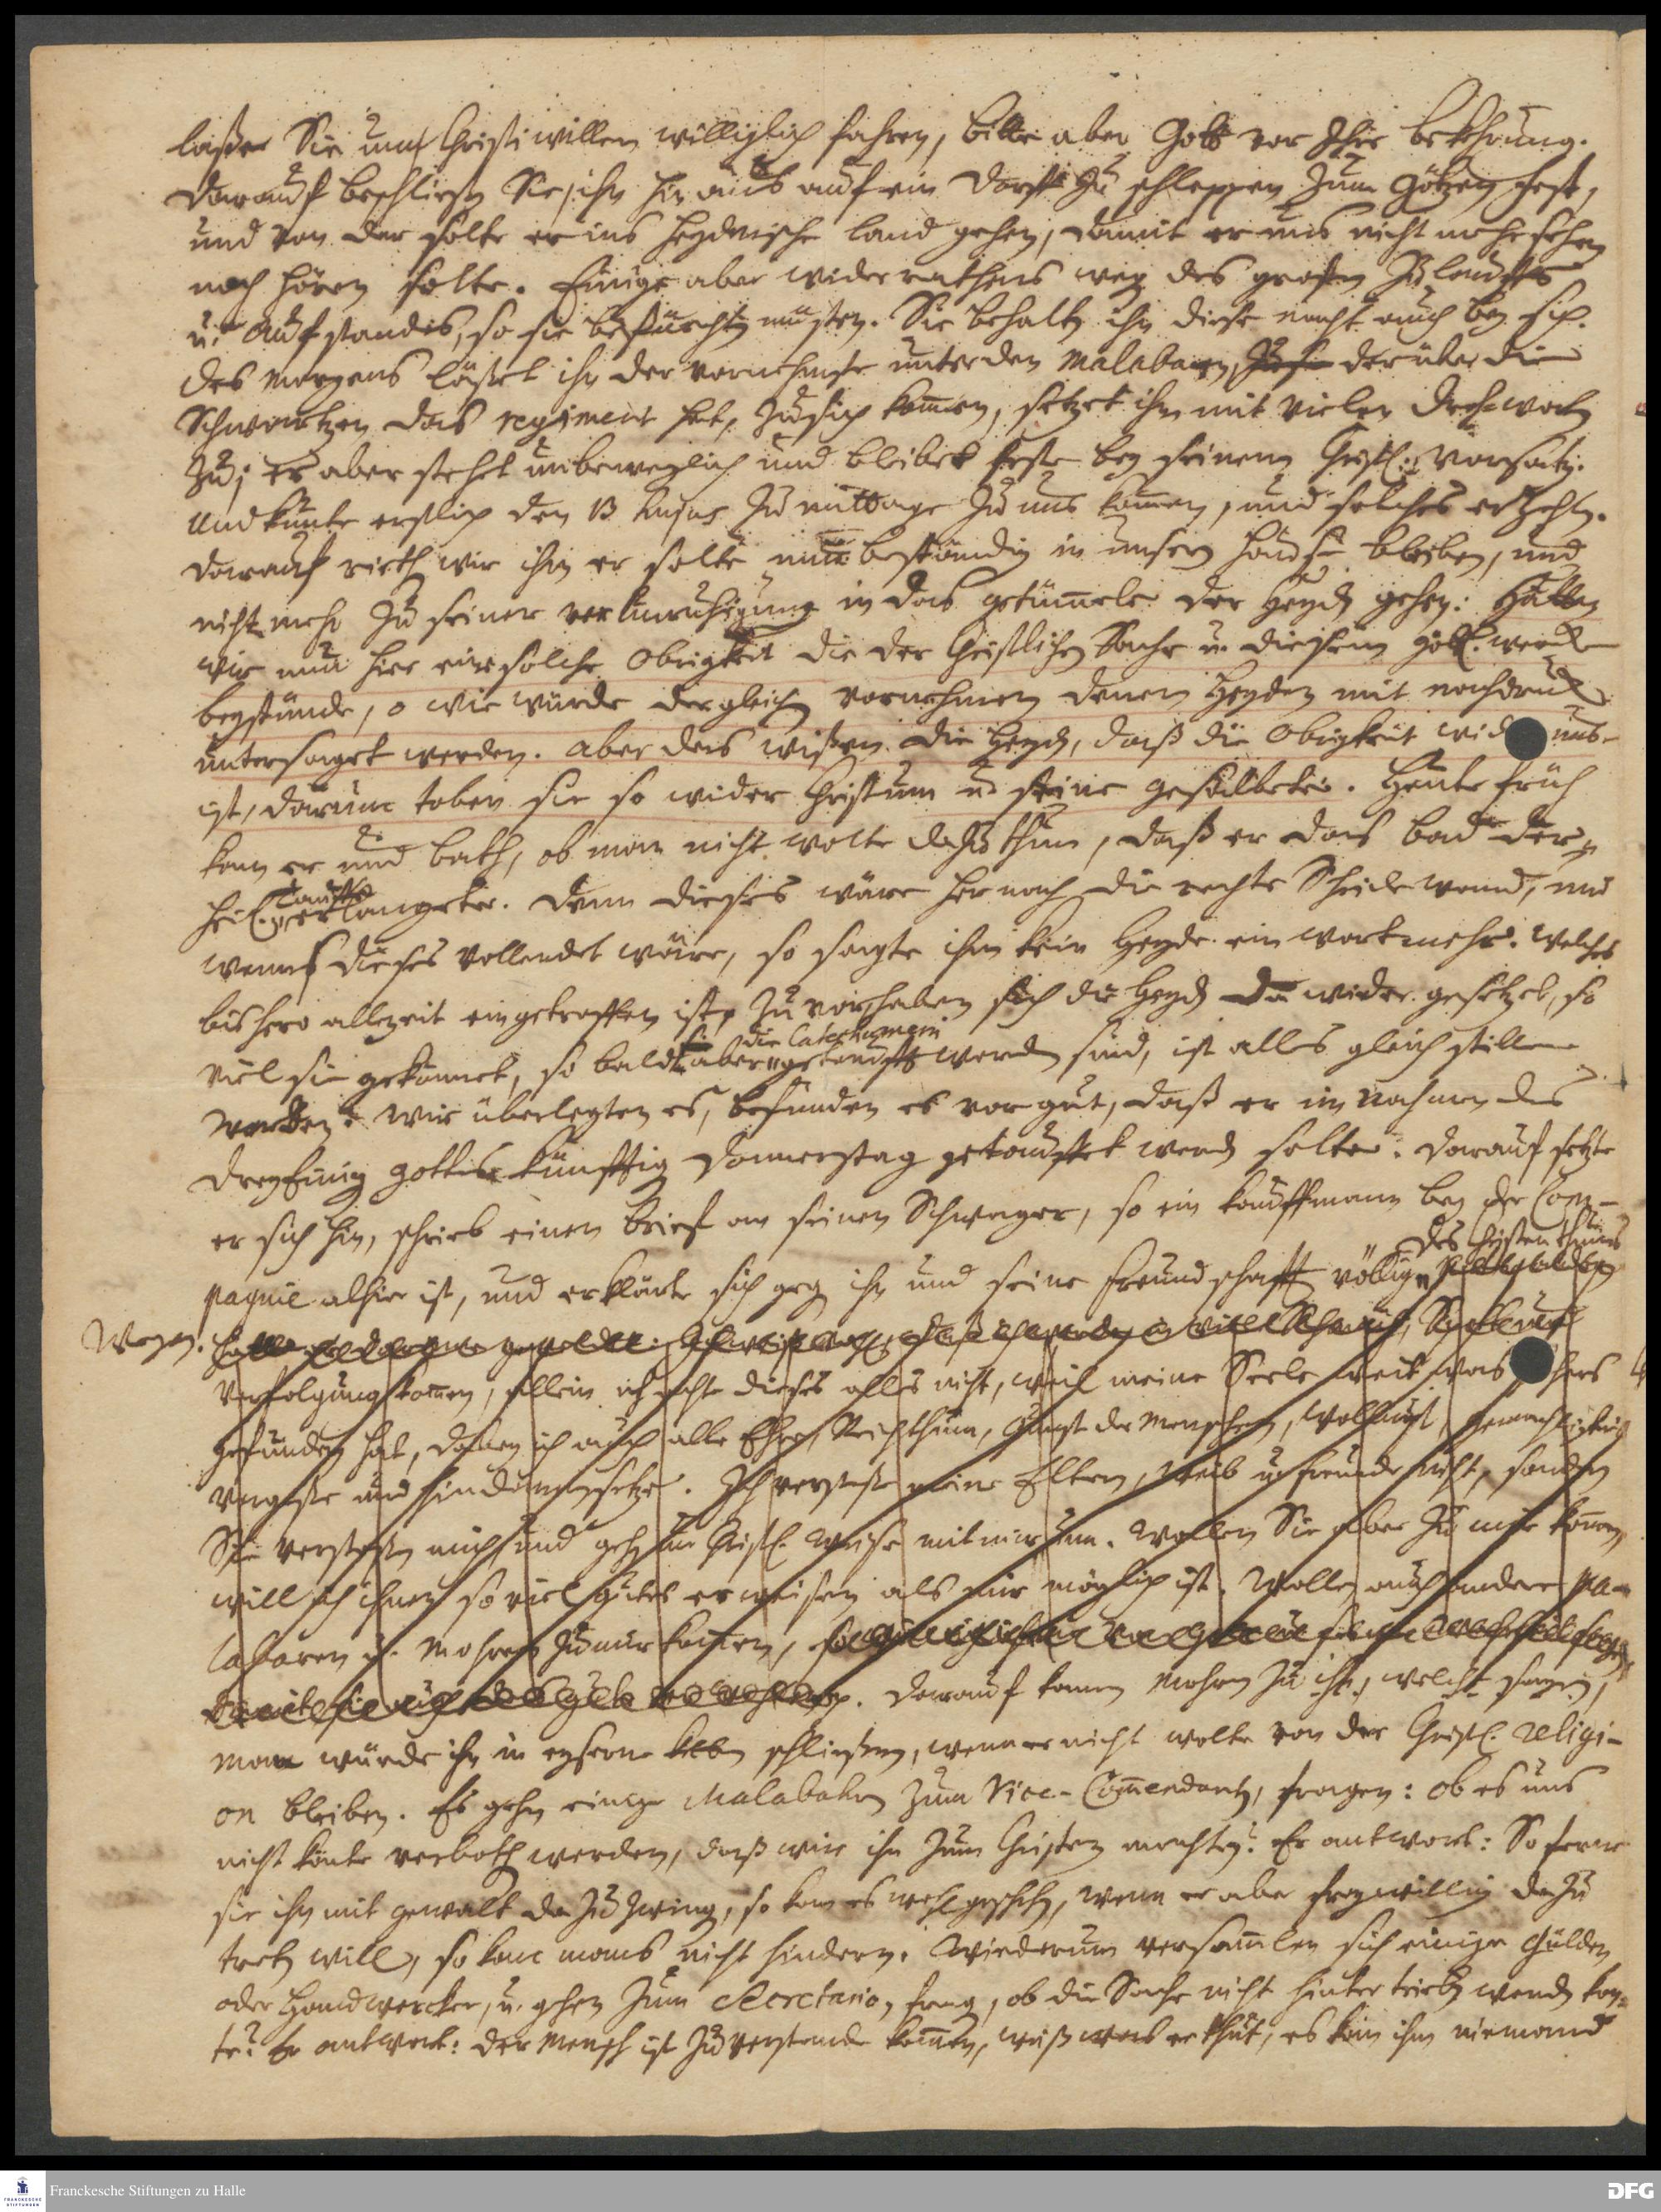 laße Sie um Christi willen williglich fahren, bitte aber Gott vor Ihre bekehrung.
Darauf beschließen Sie, ihn hinaus auf ein Dorff zu schleppen zum Götzen fest,
und von dar solte er ins heydnische land gehen, damit er uns nicht mehr sehen
noch hören solte. Einige aber widerrathens weg. des großen Zulauffs
u. Aufstandes, so sie befürchten musten. Sie behalten ihn diese nacht auch bey sich.
des Morgens läßet ihn der vornehmste unter den Malabaren, der über die
Schwartzen das regiment hat, zu sich komen, setzet ihm mit vielen Drohworten
zu; er aber stehet unbeweglich und bleibet feste bey seinem Christl. vorsatz.
Und kunte erstlich den 13 hujus zu mittage zu uns komen, und solches erzehlen.
Darauf riethen wir ihm er solte nun beständig in unserm Hause bleiben, und
nicht mehr zu seiner verunruhigung in das getümele der Heyden gehen: Hätten
wir nun hier eine solche Obrigkeit die der Christlichen Sache u. diesem göttl. werck
beystünde, o wie würde dergleichen vornehmen denen Heyden mit nachdruck
untersaget werden. Aber das wißen die Heyden, daß die Obrigkeit wider uns
ist, darum toben sie so wider Christum u. seine gesalbete. Heute früh
kam er und bath, ob man nicht wolte dazu thun, daß er das bad der
heil. Tauffe erlangete. Denn dieses wäre hernach die rechte Scheidewand, und
wenn dieses vollendet wäre, so sagte ihm kein Heyde ein wort mehr. Welches
bishero allezeit eingetroffen ist, zuvor haben sich die Heyden dawider gesetzet, so
viel sie gekonnet, so bald aber die Catechumeni getaufft worden sind, ist alles gleich stille
worden. Wir überlegten es, befunden es vor gut, daß er im Nahmen des
Dreyeinig Gottes künfftig Donnerstag getauffet werden solte. Darauf setzte
er sich hin, schrieb einen Brief an seinen Schwager, so ein kauffmann bey der Com-
pagnie alhier ist, und erklärte sich geg. ihn und seine freundschafft völlig des Christenthums
wegen.
verfolgung komen, allein ich achte dieses alles nicht, weil meine Seele weit was höhers
gefunden hat, dabey ich auch alle Ehre, Reichthum, Gunst der Menschen, Wollust, gemächligkeit
vergeße und hindansetze. Ich verstoße meine Eltern, weib u. freunde nicht, sondern
Sie verstoßen mich und gehen un Christl. weise mit mir um. Wollen Sie aber zu mir komen,
will ich ihnen so viel gutes erweisen als mir möglich ist. Wollen auch andere Ma-
labaren u. Mohren zu mir komen,
Darauf kamen Mohren zu ihm, welche sagen,
man würde ihn in eyserne keten schließen, wenn er nicht wolte von der Christl. Religi-
on bleiben. Es gehen einige Malabaren zum Vice-Comendanten, fragen: ob es uns
nicht könte verbothen werden, daß wir ihn zum Christen machten? Er antwort: So ferne
sie ihn mit gewalt dazu zwing., so kan es wohl geschehen, wenn er aber freywillig dazu
treten will, so kan mans nicht hindern. Wiederum versamlen sich einige Gülden
oder Handwercker, u. gehen zum Secretario, frag., ob die Sache nicht hintertrieben werden kön-
te? Er antwort: Der Mensch ist zu verstande komen, weiß was er thut, es kan ihm niemand
Franckesche Stiftungen zu Halle
DFG